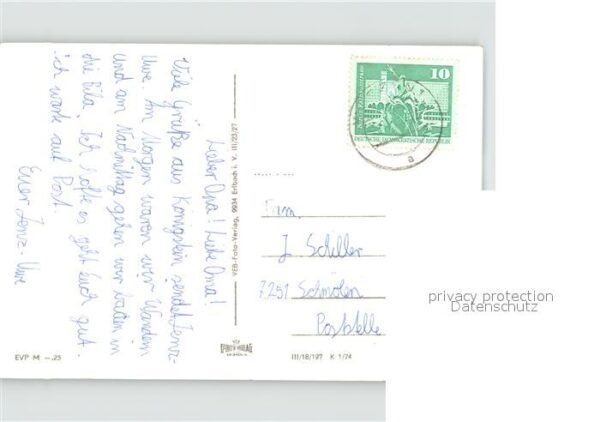 Lieber Opa! Liebe Oma!
Viele Grüße aus Königstein sendet Jens-
Uwe. Am Morgen waren wir Wandern
und am Nachmittag gehen wir baden in
die Bila. Ich hoffe es geht Euch gut.
ich warte auf Post.
Euer Jens-Uwe
EVP M —.25
VEB-Foto-Verlag, 9934 Erlbach i. V. III/23/27
10
DEUTSCHE DEMOKRATISCHE REPUBLIK
a
Fam.
J. Schiller
7251 Schmölen
Poststelle
III/18/197 K 1/74
privacy protection
Datenschutz